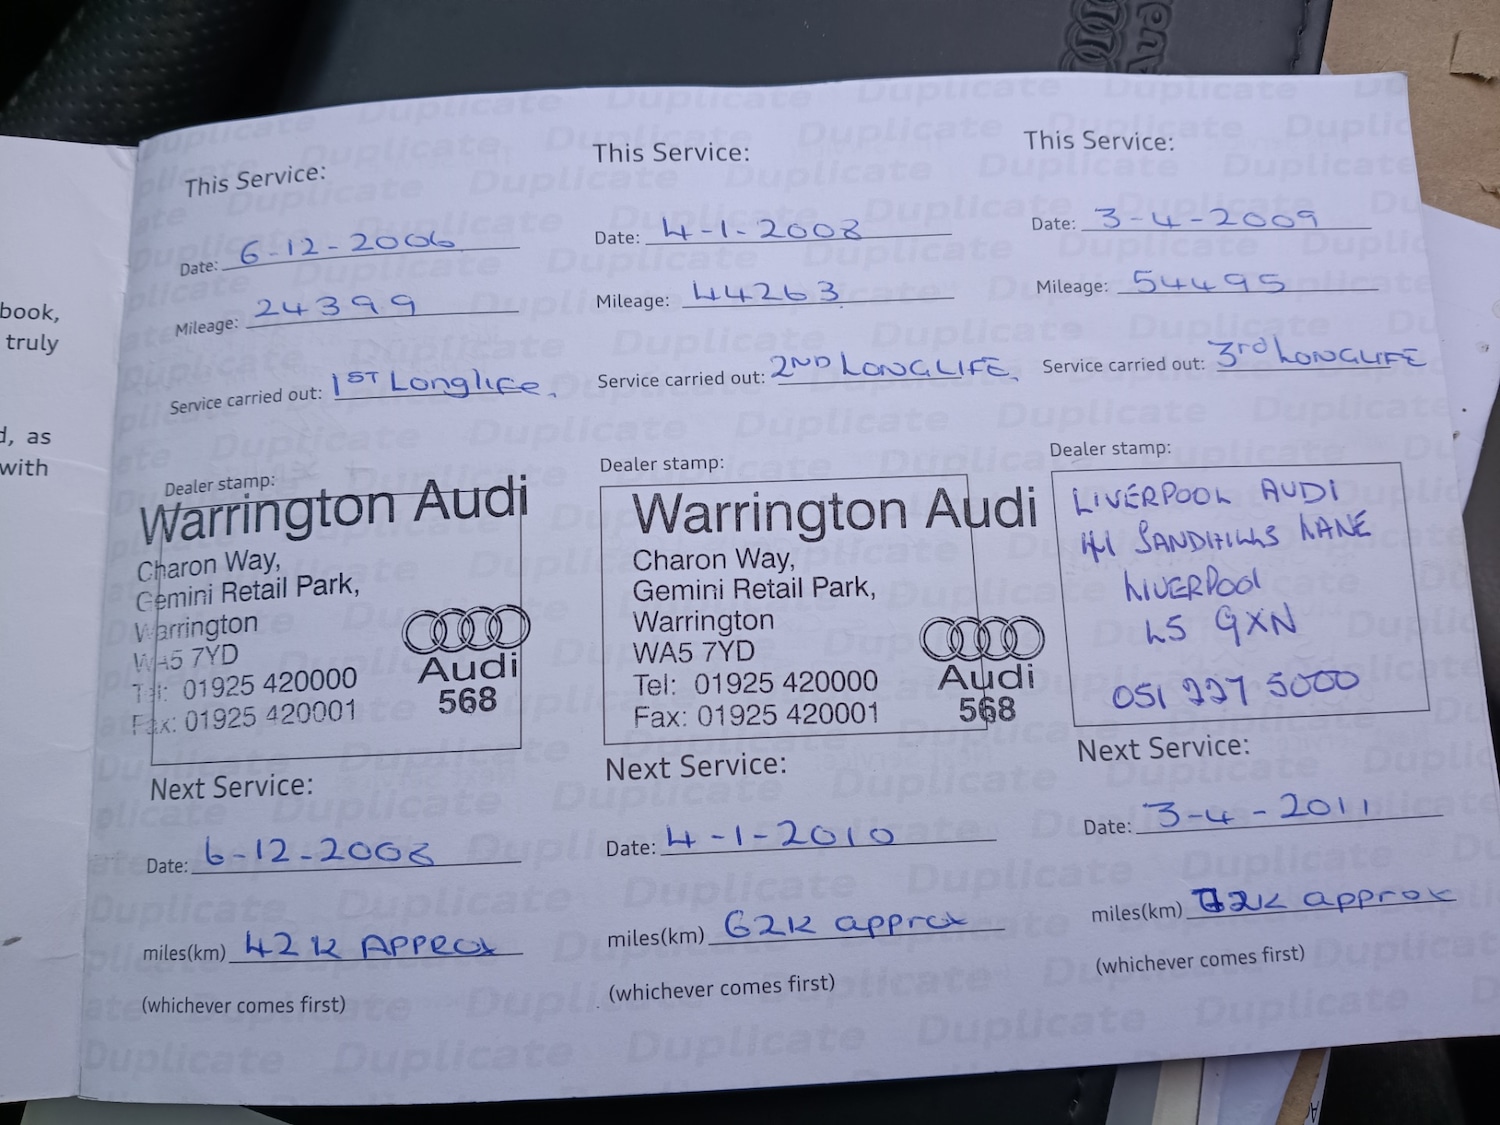 book,
truly
d, as
with
This Service:
Date: 6-12-2006
Mileage: 24399
Service carried out: 1ST Longlife.
Dealer stamp:
Warrington Audi
Charon Way,
Gemini Retail Park,
Warrington
WA5 7YD
Tel: 01925 420000
Fax: 01925 420001
Audi
568
Next Service:
Date: 6-12-2008
miles(km) 42K APPROX
(whichever comes first)
This Service:
Date: 4-1-2008
Mileage: 44263
Service carried out: 2ND LONGLIFE.
Dealer stamp:
Warrington Audi
Charon Way,
Gemini Retail Park,
Warrington
WA5 7YD
Tel: 01925 420000
Fax: 01925 420001
Audi
568
Next Service:
Date: 4-1-2010
miles(km) 62K approx
(whichever comes first)
This Service:
Date: 3-4-2009
Mileage: 54495
Service carried out: 3rd LONGLIFE
Dealer stamp:
LIVERPOOL AUDI
SANDHILLS LANE
LIVERPOOL
L5 9XN
051 227 5000
Next Service:
Date: 3-4-2011
miles(km) 72K approx
(whichever comes first)
Audi
Duplicate